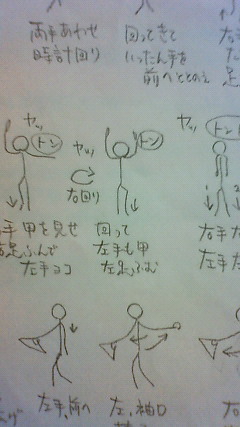 両手あわせ
時計回り
回ってきて
いったん手を
前へととのえ
右手
ヤッ
トン
ヤッ
トン
ヤッ
トン
右回り
手甲を見せ
右足ふんで
左手ヨコ
回って
左手も甲
左足ふむ
右手
左手
左手、前へ
左、袖口